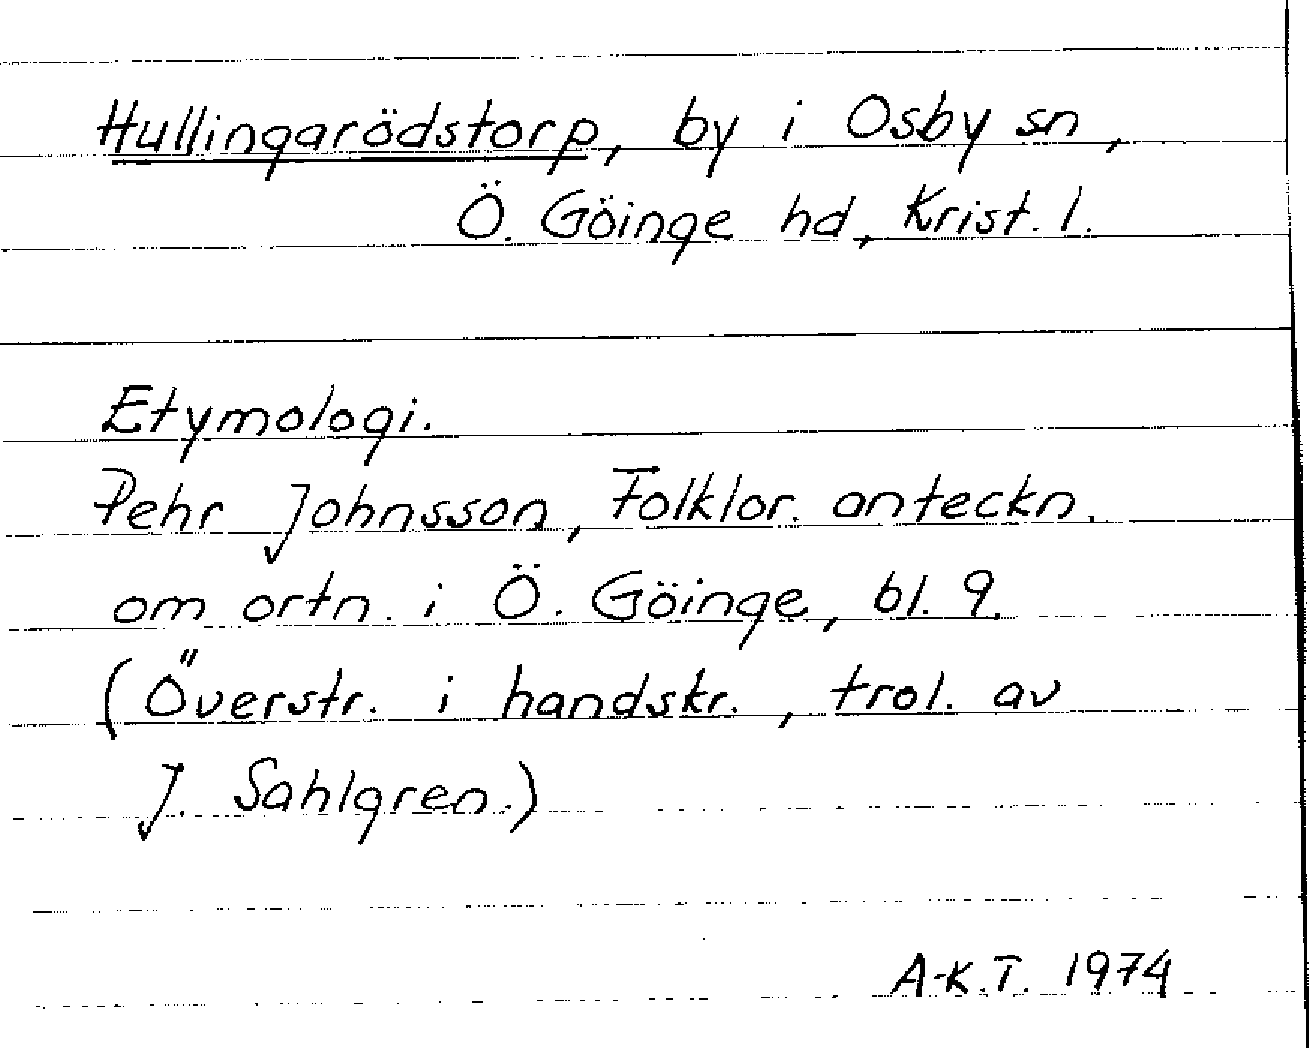 Hullingarödstorp, by i Osby sn,
Ö. Göinge hd, Krist. l.
Etymologi.
Pehr Johnsson, Folklor. anteckn.
om ortn. i Ö. Göinge, bl. 9.
(Överstr. i handskr., trol. av
J. Sahlgren.)
A-K.T. 1974